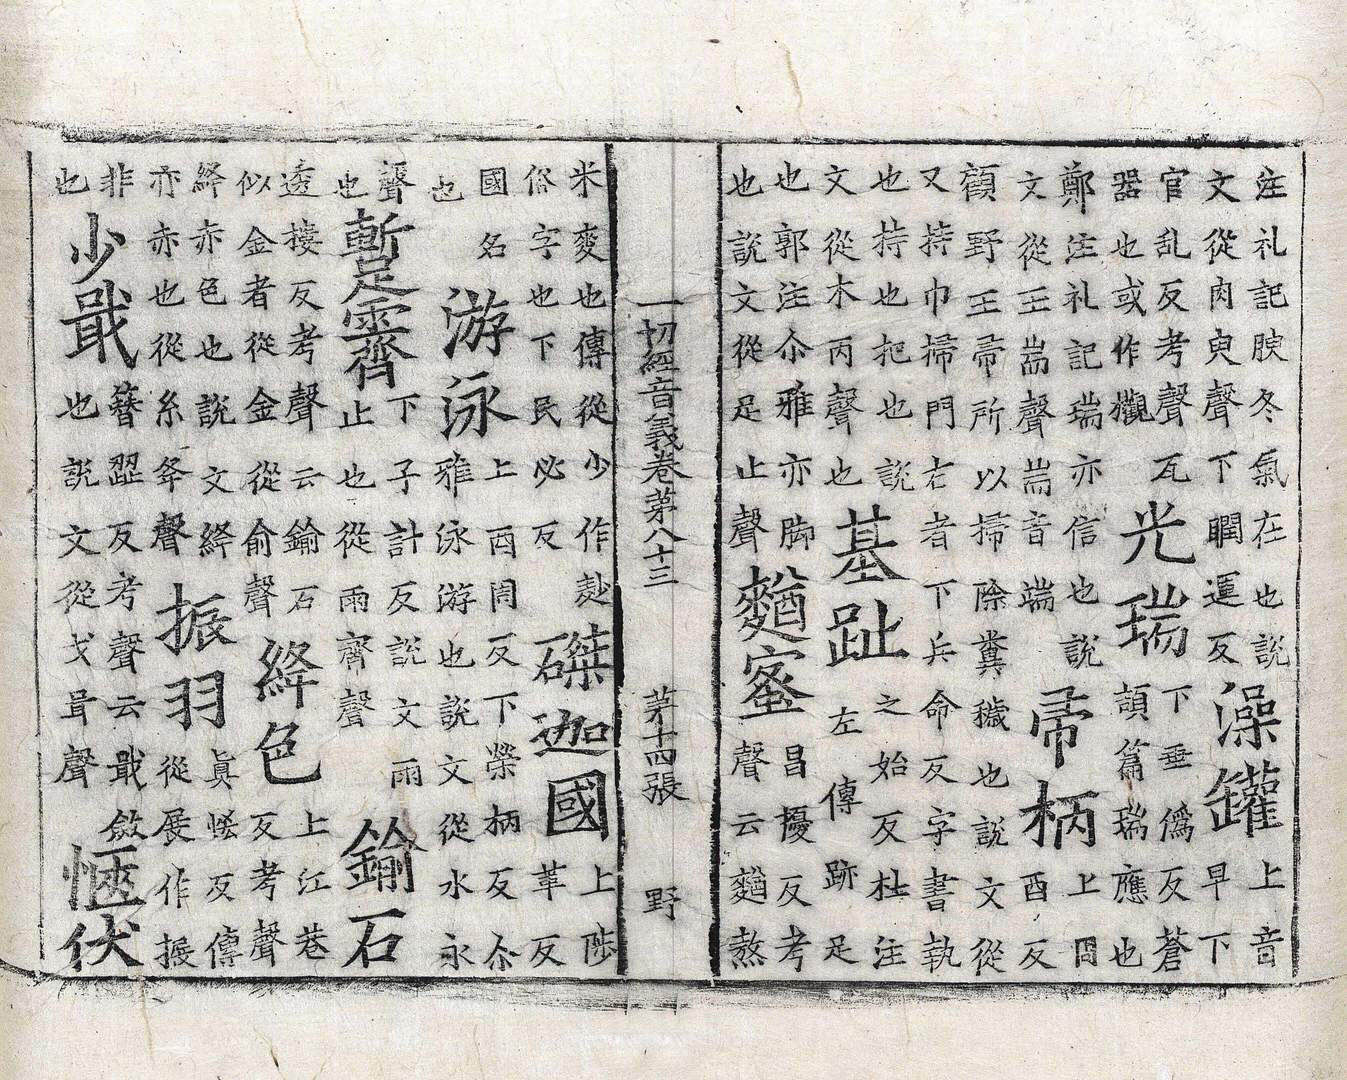 注礼記腴冬氣在也說
文從肉臾聲下瞤運反
澡罐
上音
早下
官乱反考聲瓦
器也或作鑵
光瑞
下垂偽反蒼
頡篇瑞應也
鄭注礼記瑞亦信也說
文從王耑聲耑音端
帚柄
上周
酉反
顧野王帚所以掃除糞穢也說文從
又持巾掃門右者下兵命反字書執
也持也把也說
文從木丙聲也
基趾
之始反杜注
左傳跡足
也郭注尒雅亦脚
也說文從足止聲
蜜
昌擾反考
聲云熬
一切經音義卷第八十三 第十四張 野
米麥也傳從少作麨
俗字也下民必反
磔迦國
上陟
革反
國名
也
游泳
上酉周反下榮柄反尒
雅泳游也說文從水永
聲
也
蹔霽
下子計反說文雨
止也從雨齊聲
鍮石
透樓反考聲云鍮石
似金者從金從俞聲
絳色
上江巷
反考聲
絳赤色也說文絳
亦赤也從糸夅聲
振羽
真反傳
從展作振
非
也
少戢
簪澀反考聲云戢斂
也說文從戈咠聲
愜伏